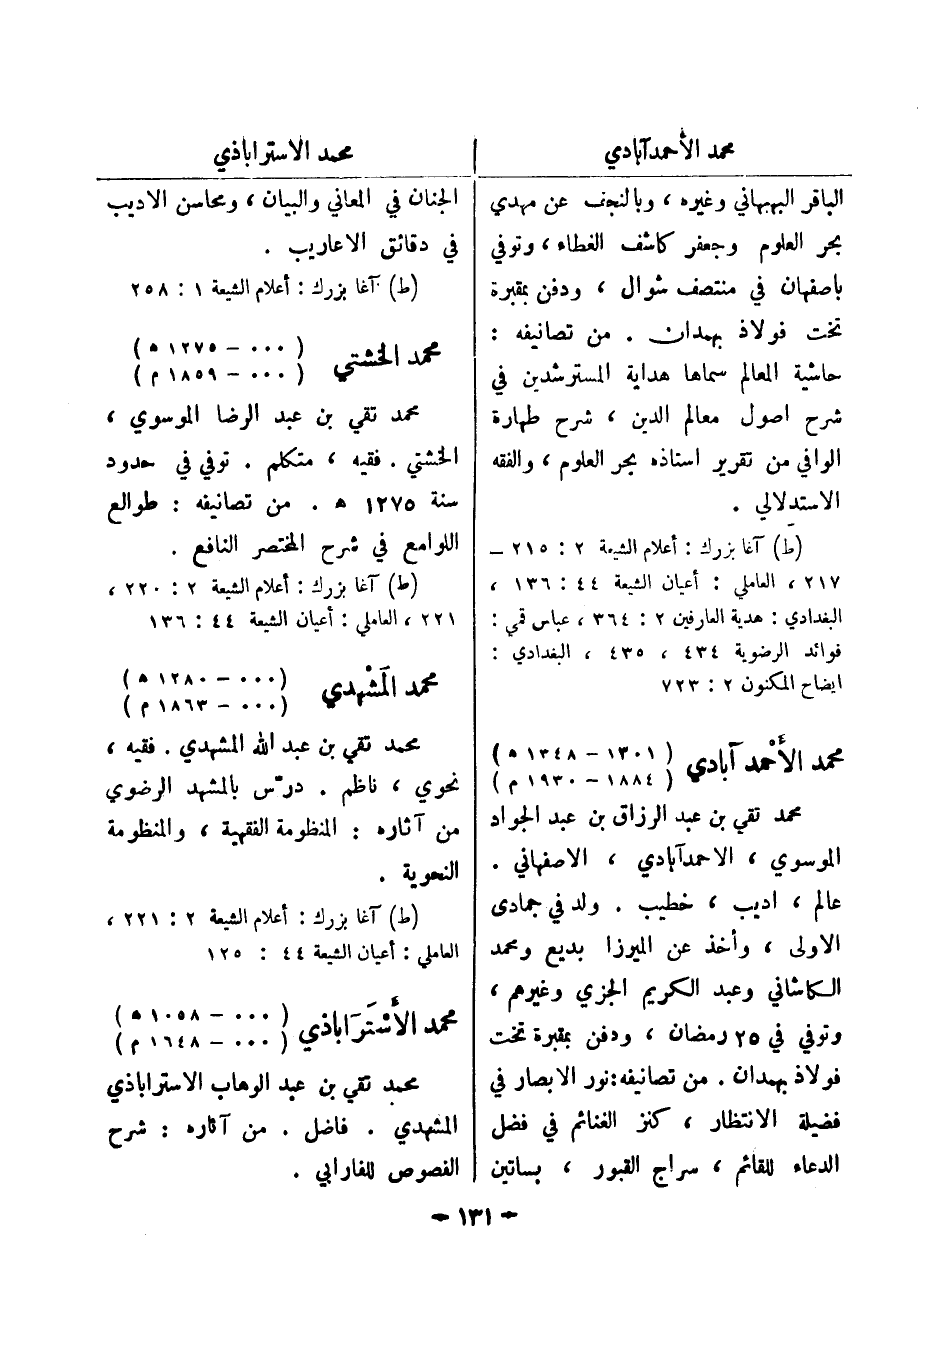 محمد الأحمدآبادي
محمد الاستراباذي
الباقر البهبهاني وغيره ، وبالنجف عن مهدي
بحر العلوم وجعفر كاشف الغطاء ، وتوفي
باصفهان في منتصف شوال ، ودفن بمقبرة
تخت فولاذ بهمدان . من تصانيفه :
حاشية المعالم سماها هداية المسترشدين في
شرح اصول معالم الدين ، شرح طهارة
الوافي من تقرير استاذه بحر العلوم ، والفقه
الاستدلالي .
(ط) آغا بزرك : أعلام الشيعة ٢ : ٢١٥ –
٢١٧ ، العاملي : أعيان الشيعة ٤٤ : ١٣٦ ،
البغدادي : هدية العارفين ٢ : ٣٦٤ ، عباس قمي :
فوائد الرضوية ٤٣٤ ، ٤٣٥ ، البغدادي :
ايضاح المكنون ٢ : ٧٢٣
محمد الأَحْمد آبادي ( ١٣٠١ – ١٣٤٨ ه )
( ١٨٨٤ – ١٩٣٠ م )
محمد تقي بن عبد الرزاق بن عبد الجواد
الموسوي ، الاحمدآبادي ، الاصفهاني .
عالم ، اديب ، خطيب . ولد في جمادى
الاولى ، وأخذ عن الميرزا بديع ومحمد
الكاشاني وعبد الكريم الجزي وغيرهم ،
وتوفي في ٢٥ رمضان ، ودفن بمقبرة تخت
فولاذ بهمدان . من تصانيفه : نور الابصار في
فضيلة الانتظار ، كنز الغنائم في فضل
الدعاء للقائم ، سراج القبور ، بساتين
الجنان في المعاني والبيان ، ومحاسن الاديب
في دقائق الاعاريب .
(ط) آغا بزرك : أعلام الشيعة ١ : ٢٥٨
محمد الخشتي ( ٠٠٠ – ١٢٧٥ ه )
( ٠٠٠ – ١٨٥٩ م )
محمد تقي بن عبد الرضا الموسوي ،
الخشتي . فقيه ، متكلم . توفي في حدود
سنة ١٢٧٥ ه . من تصانيفه : طوالع
اللوامع في شرح المختصر النافع .
(ط) آغا بزرك : أعلام الشيعة ٢ : ٢٢٠ ،
٢٢١ ، العاملي : أعيان الشيعة ٤٤ : ١٣٦
محمد المَشْهدي ( ٠٠٠ – ١٢٨٠ ه )
( ٠٠٠ – ١٨٦٣ م )
محمد تقي بن عبد الله المشهدي . فقيه ،
نحوي ، ناظم . درّس بالمشهد الرضوي
من آثاره : المنظومة الفقهية ، والمنظومة
النحوية .
(ط) آغا بزرك : أعلام الشيعة ٢ : ٢٢١ ،
العاملي : أعيان الشيعة ٤٤ : ١٢٥
محمد الأَسْتَرَاباذي ( ٠٠٠ – ١٠٥٨ ه )
( ٠٠٠ – ١٦٤٨ م )
محمد تقي بن عبد الوهاب الاستراباذي
المشهدي . فاضل . من آثاره : شرح
الفصوص للفارابي .
– ١٣١ –